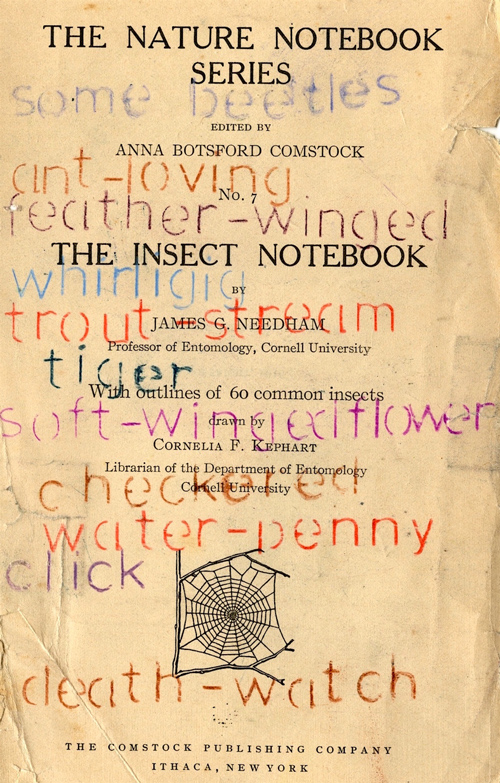 THE NATURE NOTEBOOK
SERIES
some beetles
EDITED BY
ANNA BOTSFORD COMSTOCK
ant-loving
No. 7
feather-winged
THE INSECT NOTEBOOK
whirligig
BY
trout-stream
JAMES G. NEEDHAM
Professor of Entomology, Cornell University
tiger
With outlines of 60 common insects
soft-wingedflower
drawn by
CORNELIA F. KEPHART
Librarian of the Department of Entomology
checkered
Cornell University
water-penny
click
death-watch
THE COMSTOCK PUBLISHING COMPANY
ITHACA, NEW YORK